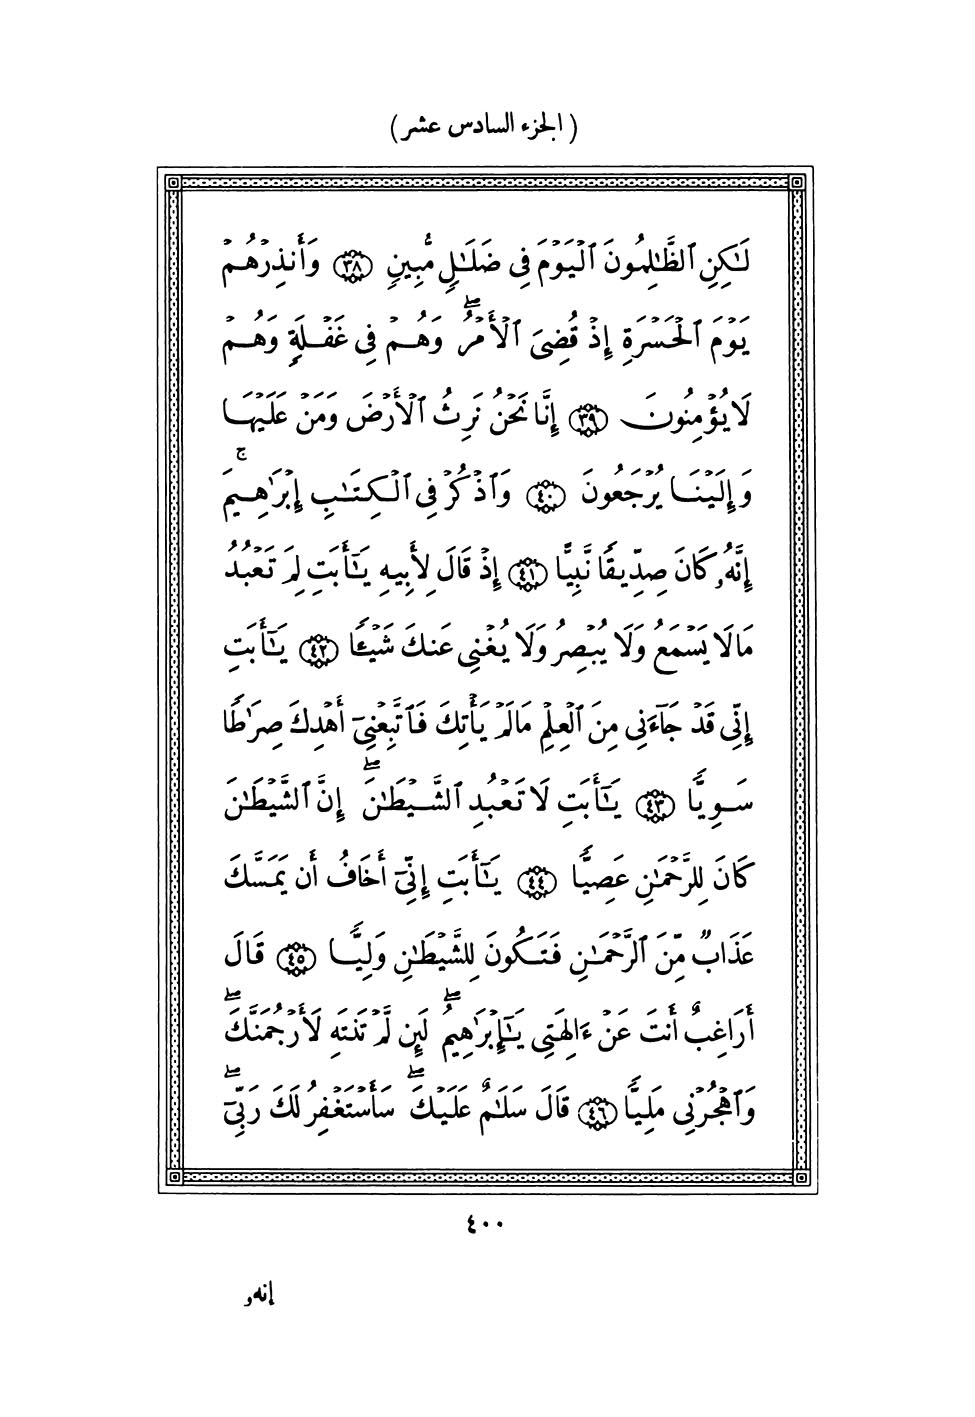 (الجزء السادس عشر)
لَـٰكِنِ ٱلظَّـٰلِمُونَ ٱلْيَوْمَ فِى ضَلَـٰلٍ مُّبِينٍ ٣٨ وَأَنذِرْهُمْ
يَوْمَ ٱلْحَسْرَةِ إِذْ قُضِىَ ٱلْأَمْرُ ۖ وَهُمْ فِى غَفْلَةٍ وَهُمْ
لَا يُؤْمِنُونَ ٣٩ إِنَّا نَحْنُ نَرِثُ ٱلْأَرْضَ وَمَنْ عَلَيْهَا
وَإِلَيْنَا يُرْجَعُونَ ٤٠ وَٱذْكُرْ فِى ٱلْكِتَـٰبِ إِبْرَٰهِيمَ ۚ
إِنَّهُۥ كَانَ صِدِّيقًا نَّبِيًّا ٤١ إِذْ قَالَ لِأَبِيهِ يَـٰٓأَبَتِ لِمَ تَعْبُدُ
مَا لَا يَسْمَعُ وَلَا يُبْصِرُ وَلَا يُغْنِى عَنكَ شَيْـًٔا ٤٢ يَـٰٓأَبَتِ
إِنِّى قَدْ جَآءَنِى مِنَ ٱلْعِلْمِ مَا لَمْ يَأْتِكَ فَٱتَّبِعْنِىٓ أَهْدِكَ صِرَٰطًا
سَوِيًّا ٤٣ يَـٰٓأَبَتِ لَا تَعْبُدِ ٱلشَّيْطَـٰنَ ۖ إِنَّ ٱلشَّيْطَـٰنَ
كَانَ لِلرَّحْمَـٰنِ عَصِيًّا ٤٤ يَـٰٓأَبَتِ إِنِّىٓ أَخَافُ أَن يَمَسَّكَ
عَذَابٌ مِّنَ ٱلرَّحْمَـٰنِ فَتَكُونَ لِلشَّيْطَـٰنِ وَلِيًّا ٤٥ قَالَ
أَرَاغِبٌ أَنتَ عَنْ ءَالِهَتِى يَـٰٓإِبْرَٰهِيمُ ۖ لَئِن لَّمْ تَنتَهِ لَأَرْجُمَنَّكَ ۖ
وَٱهْجُرْنِى مَلِيًّا ٤٦ قَالَ سَلَـٰمٌ عَلَيْكَ ۖ سَأَسْتَغْفِرُ لَكَ رَبِّىٓ ۖ
٤٠٠
إنهۥ